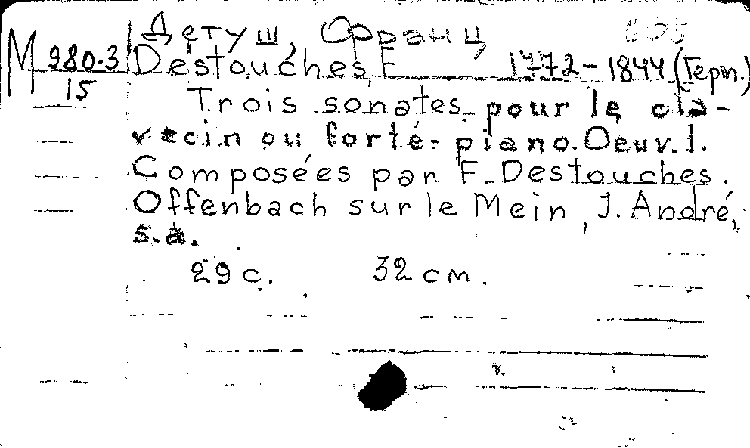 Детуш, Франц
M 980-3/15 Destouches, F. 1772-1844 (Герм.)
Trois sonates pour le cla-
vecin ou forté-piano. Oeuv. 1.
Composées par F. Destouches.
Offenbach sur le Mein, J. André,
s.a.
29 c. 32 cm.